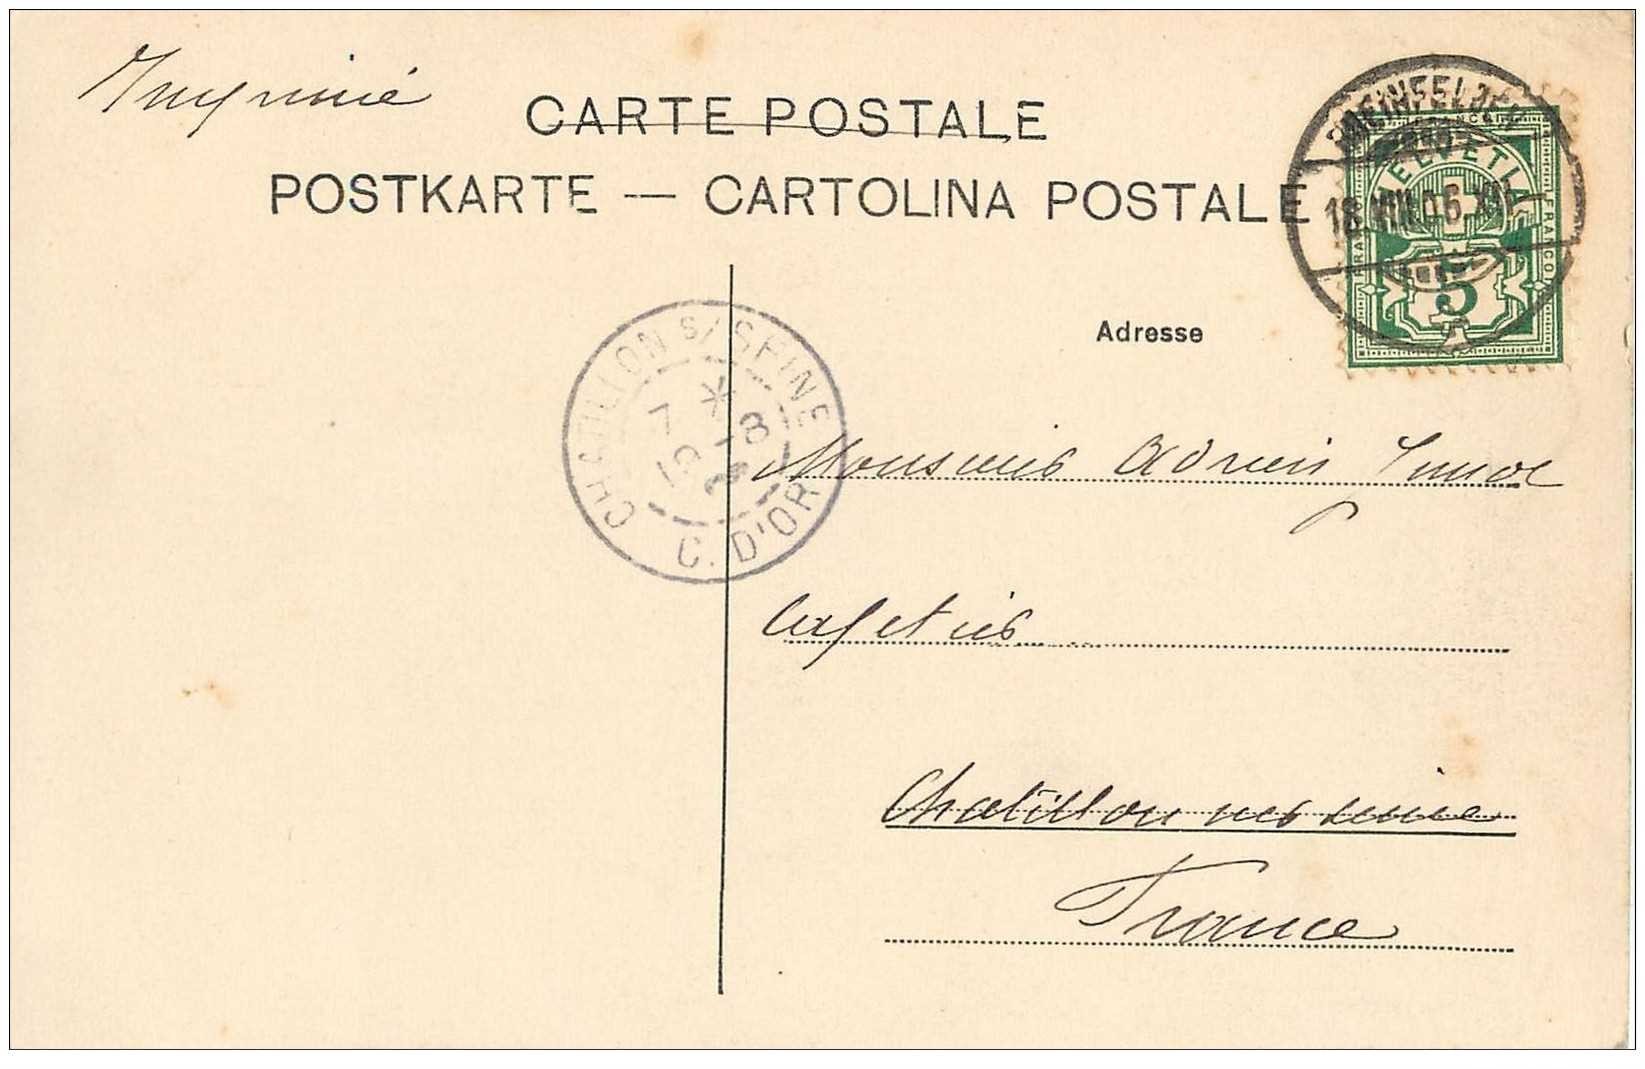 Imprimé
CARTE POSTALE
POSTKARTE — CARTOLINA POSTALE
RHEINFELDEN
18.VIII.06.XII
FRANCO
HELVETIA
5
Adresse
CHATILLON S/ SEINE
7 * 19 -8
C. D'OR
Monsieur Adrien
Cafetier
Chatillon sur seine
France